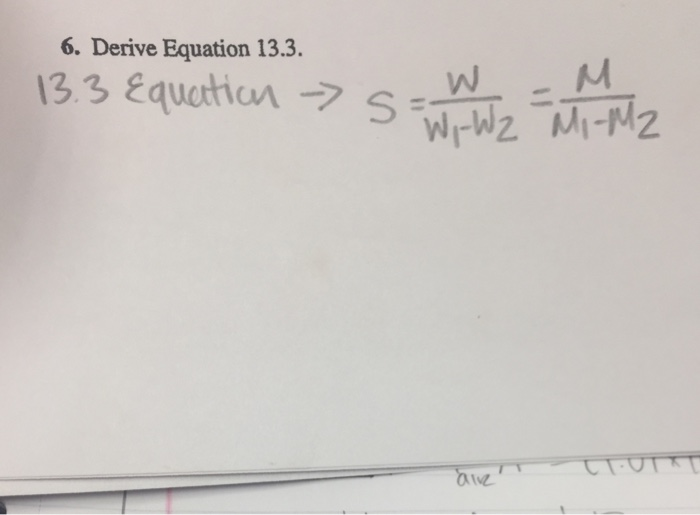 6. Derive Equation 13.3.
13.3 Equation → S = W / W1-W2 = M / M1-M2